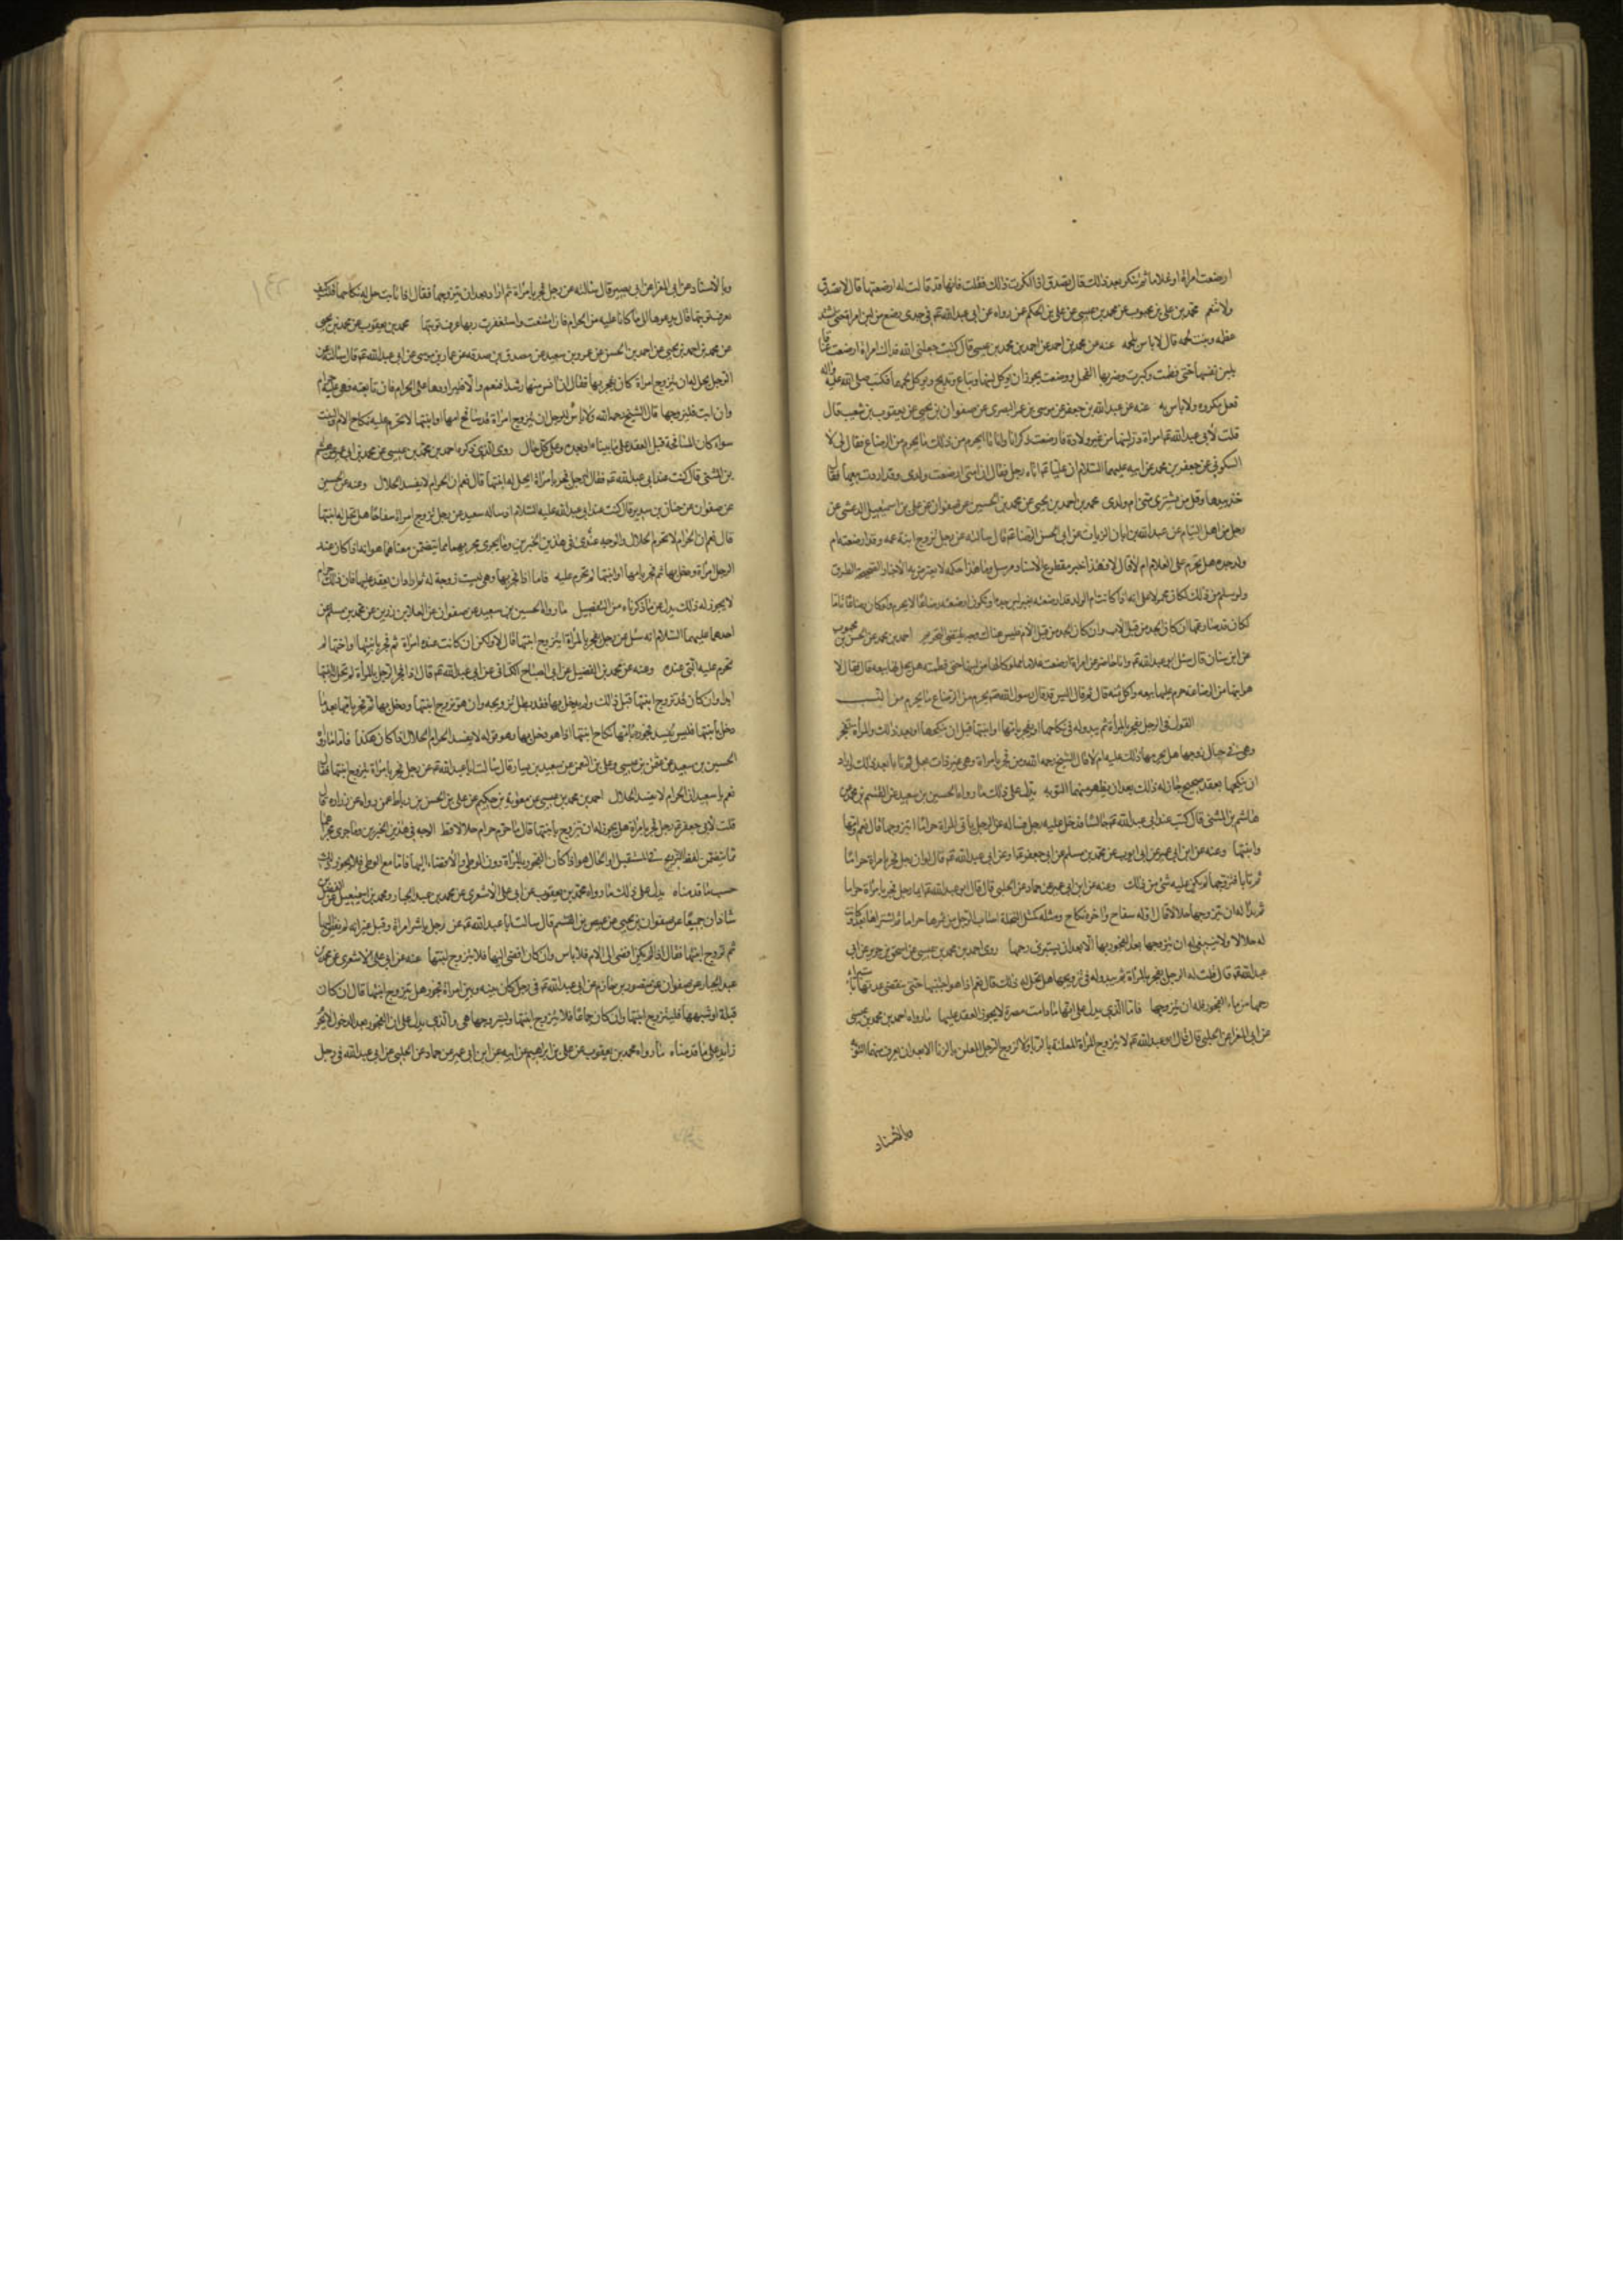 ارضعت امراة او غلاما ثم تنكر بعد ذلك قال تصدق اذا انكرت ذلك قلت فانها قد قالت له ارضعتهما قال لا تصدق
ولا تنعم محمد بن علي بن محبوب عن محمد بن عيسى عن علي بن الحكم عن رواه عن ابي عبد الله ع في جدي رضع من لبن امراة حتى اشتد
عظمه ونبت لحمه قال لا باس بلحمه عنه عن محمد بن احمد عن احمد بن محمد بن عيسى قال كتبت جعلني الله فداك امراة ارضعت عناقا
بلبن نفسها حتى فطمت وكبرت وضربها الفحل ووضعت يجوز ان يوكل لبنها وتباع وتذبح ويوكل لحمها فكتب صلى الله عليه واله
فعل مكروه ولا باس به عنه عن عبد الله بن جعفر عن موسى بن عمر البصري عن صفوان بن يحيى عن يعقوب بن شعيب قال
قلت لابي عبد الله ع امراة در لبنها من غير ولادة فارضعت ذكرانا واناثا ايحرم من ذلك ما يحرم من الرضاع فقال لي لا
السكوني عن جعفر بن محمد عن ابيه عليهما السلام ان عليا ع اتاه رجل فقال ان امتي ارضعت ولدي وقد اردت بيعها فقال
خذ بيدها وقل من يشتري مني ام ولدي محمد بن احمد بن يحيى عن محمد بن الحسين عن صفوان عن علي بن اسمعيل الدغشي عن
رجل من اهل الشام عن عبد الله بن ابان الزيات عن ابي الحسن الرضا ع قال سالته عن رجل تزوج ابنة عمه وقد ارضعته ام
ولد جده هل تحرم على الغلام ام لا قال لا فهذا خبر مقطوع الاسناد مرسل وما هذا حكمه لا يعترض به الاخبار الصحيحة الطرق
ولو سلم من ذلك لكان محمولا على انه اذا كانت ام الولد قد ارضعته بغير لبن جده او يكون ارضعته رضاعا لا يحرم ولو كان رضاعا تاما
لكان قد صار عمها ان كان الجد من قبل الاب وان كان الجد من قبل الام فليس هناك وجه يقتضي التحريم احمد بن محمد عن الحسن بن محبوب
عن ابن سنان قال سئل ابو عبد الله ع وانا حاضر عن امراة ارضعت غلاما مملوكا لها من لبنها حتى فطمته هل يحل لها بيعه قال فقال لا
هو ابنها من الرضاعة حرم عليها بيعه واكل ثمنه قال ثم قال اليس قد قال رسول الله ص يحرم من الرضاع ما يحرم من النسب
القول في الرجل يفجر بالمراة ثم يبدو له في نكاحها او يفجر بامها او ابنتها قبل ان ينكحها او بعد ذلك والمراة تفجر
وهي في حبال زوجها هل يحرمها ذلك عليه ام لا قال الشيخ رحمه الله من فجر بامراة وهي غير ذات بعل ثم تابا بعد ذلك اراد
ان ينكحها بعقد صحيح جاز له ذلك بعد ان يظهر منهما التوبه يدل على ذلك ما رواه الحسين بن سعيد عن القسم بن محمد عن
هاشم بن المثنى قال كنت عند ابي عبد الله ع جالسا فدخل عليه رجل فساله عن الرجل ياتي المراة حراما ايتزوجها قال نعم وامها
وابنتها وعنه عن ابن ابي عمير عن ابي ايوب عن محمد بن مسلم عن ابي جعفر ع او عن ابي عبد الله ع قال لو ان رجلا فجر بامراة حراما
ثم تابا فتزوجها لم يكن عليه شيء من ذلك وعنه عن ابن ابي عمير عن حماد عن الحلبي قال قال ابو عبد الله ع ايما رجل فجر بامراة حراما
ثم بدا له ان يتزوجها حلالا قال اوله سفاح واخره نكاح ومثله كمثل النخلة اصاب الرجل من ثمرها حراما ثم اشتراها بعد فكانت
له حلالا ولا ينبغي له ان يتزوجها بعد الفجور بها الا بعد ان يستبرئ رحمها روى احمد بن محمد بن عيسى عن اسحق بن جرير عن ابي
عبد الله ع قال قلت له الرجل يفجر بالمراة ثم يبدو له في تزويجها هل يحل له ذلك قال نعم اذا هو اجتنبها حتى تنقضي عدتها باستبراء
رحمها من ماء الفجور فله ان يتزوجها فاما الذي يدل على انها ما دامت مصرة لا يجوز العقد عليها ما رواه احمد بن محمد بن عيسى
عن ابي المغرا عن الحلبي قال قال ابو عبد الله ع لا تتزوج المراة المعلنة بالزنا ولا تزوج الرجل المعلن بالزنا الا بعد ان يعرف منهما التوبة
وبالاسناد
وبالاسناد عن ابي المغرا عن ابي بصير قال سالته عن رجل فجر بامراة ثم اراد بعد ان يتزوجها فقال اذا تابت حل له نكاحها قلت كيف
تعرف توبتها قال يدعوها الى ما كانا عليه من الحرام فان امتنعت واستغفرت ربها عرف توبتها محمد بن يعقوب عن محمد بن يحيى
عن محمد بن احمد بن يحيى عن احمد بن الحسن عن عمرو بن سعيد عن مصدق بن صدقة عن عمار بن موسى عن ابي عبد الله ع قال سالته عن
الرجل يحل له ان يتزوج امراة كان يفجر بها فقال ان انس منها رشدا فنعم والا فليراودها على الحرام فان تابعته فهي عليه حرام
وان ابت فليتزوجها قال الشيخ رحمه الله ولا باس للرجل ان يتزوج امراة قد سافح امها او ابنتها لا يحرم عليه نكاح الام والبنت
سواء كان المسافحة قبل العقد على ما بيناه او بعده وعلى كل حال روى الذي ذكره احمد بن محمد بن عيسى عن محمد بن ابي عمير عن هاشم
بن المثنى قال كنت عند ابي عبد الله ع فقال له رجل رجل فجر بامراة ايحل له ابنتها قال نعم ان الحرام لا يفسد الحلال وعنه عن الحسين
عن صفوان عن حنان بن سدير قال كنت عند ابي عبد الله عليه السلام اذ ساله سعيد عن رجل تزوج امراة سفاحا هل تحل له ابنتها
قال نعم ان الحرام لا يحرم الحلال والوجه عندي في هذين الخبرين وما يجري مجريهما مما يتضمن معناهما هو انه اذا كان عند
الرجل امراة ودخل بها ثم فجر بامها او ابنتها لم تحرم عليه فاما اذا فجر بها وهي ليست زوجة له ثم اراد ان يعقد عليها فان ذلك حرام
لا يجوز له ذلك يدل على ما ذكرناه من التفصيل ما رواه الحسين بن سعيد عن صفوان عن العلاء بن رزين عن محمد بن مسلم عن
احدهما عليهما السلام انه سئل عن رجل يفجر بالمراة ايتزوج ابنتها قال لا ولكن ان كانت عنده امراة ثم فجر بابنتها واختها لم
تحرم عليه التي عنده وعنه عن محمد بن الفضيل عن ابي الصباح الكناني عن ابي عبد الله ع قال اذا فجر الرجل بالمراة لم تحل له ابنتها
ابدا وان كان قد تزوج ابنتها قبل ذلك ولم يدخل بها فقد بطل تزويجه وان هو تزوج ابنتها ودخل بها ثم فجر بامها بعد ما
دخل بابنتها فليس يفسد فجوره بامها نكاح ابنتها اذا هو دخل بها وهو قوله لا يفسد الحرام الحلال اذا كان هكذا فاما ما رواه
الحسين بن سعيد عن صفوان بن عيسى وعلي بن النعمن عن سعيد بن يسار قال سالت ابا عبد الله ع عن رجل فجر بامراة يتزوج ابنتها فقال
نعم يا سعيد ان الحرام لا يفسد الحلال احمد بن محمد بن عيسى عن معوية بن حكيم عن علي بن الحسن بن رباط عمن رواه عن زرارة قال
قلت لابي جعفر ع رجل فجر بامراة هل يجوز له ان يتزوج بابنتها قال ما حرم حرام حلالا قط الوجه في هذين الخبرين وما جرى مجراهما
مما يتضمن لفظ التزويج في المستقبل او الحال هو اذا كان الفجور بالمراة دون الوطي والافضاء اليها فاما مع الوطي فلا يجوز ذلك
حسب ما قدمناه يدل على ذلك ما رواه محمد بن يعقوب عن ابي علي الاشعري عن محمد بن عبد الجبار ومحمد بن اسمعيل عن الفضل بن
شاذان جميعا عن صفوان بن يحيى عن عيص بن القسم قال سالت ابا عبد الله ع عن رجل باشر امراة وقبل غير انه لم يفض اليها
ثم تزوج ابنتها فقال اذا لم يكن افضى الى الام فلا باس وان كان افضى اليها فلا يتزوج ابنتها عنه عن ابي علي الاشعري عن محمد بن
عبد الجبار عن صفوان عن منصور بن حازم عن ابي عبد الله ع في رجل كان بينه وبين امراة فجور هل يتزوج ابنتها قال ان كان
قبلة او شبهها فليتزوج ابنتها وان كان جماعا فلا يتزوج ابنتها وليتزوجها هي والذي يدل على ان الفجور بعد الدخول لا يحرم
زايد على ما قدمناه ما رواه محمد بن يعقوب عن علي بن ابراهيم عن ابيه عن ابن ابي عمير عن حماد عن الحلبي عن ابي عبد الله في رجل